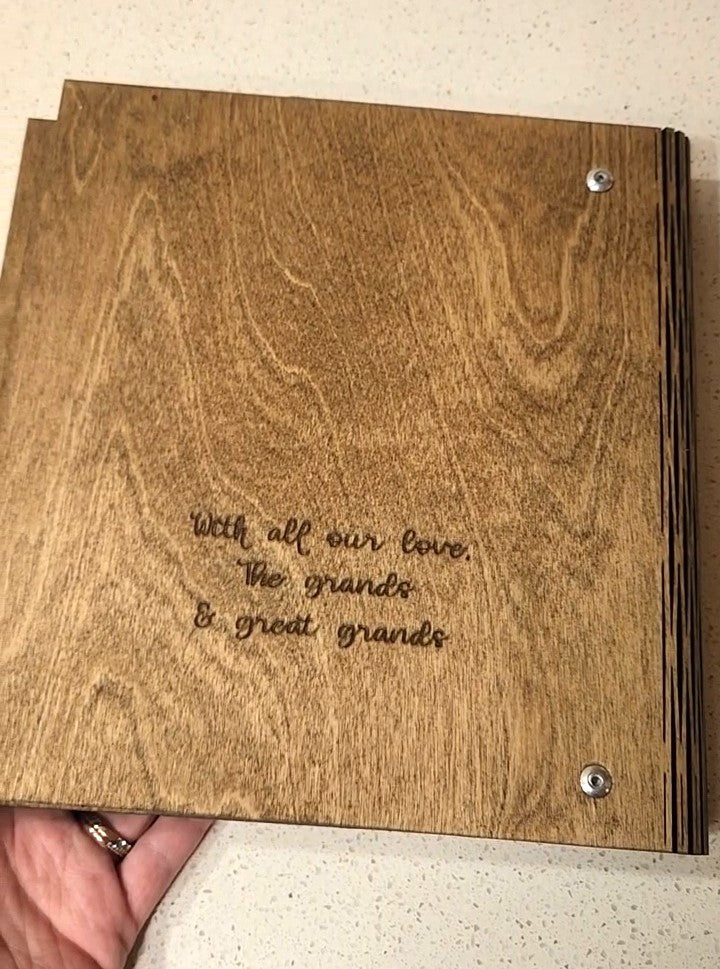 With all our love,
The grands
& great grands